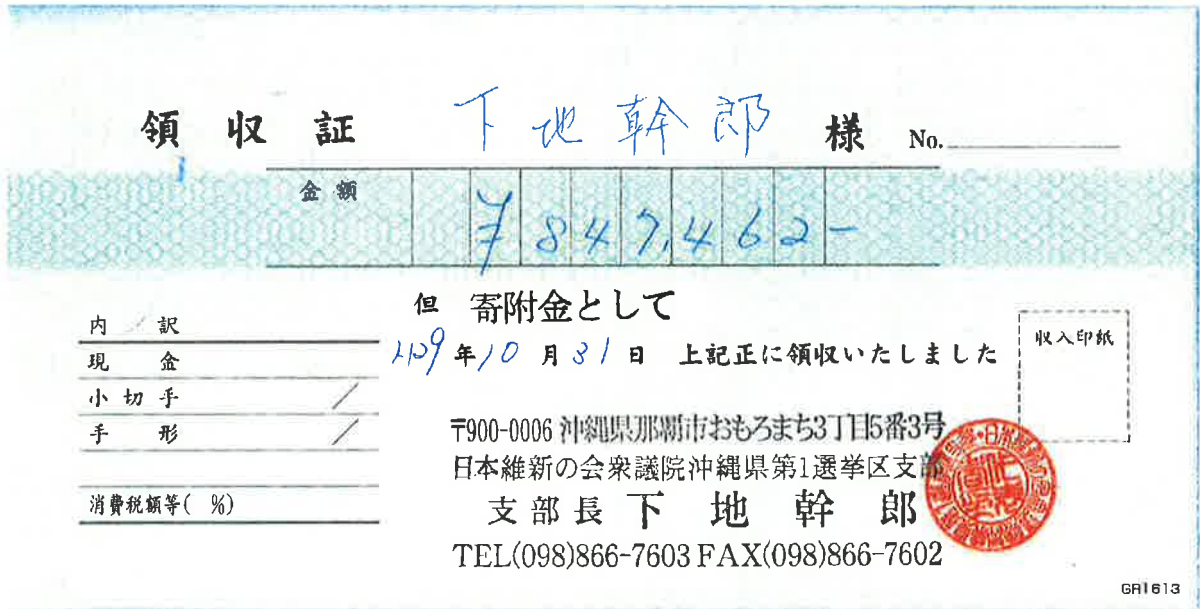 領収証 下地幹郎 様 No.
金額 ¥847,462-
但 寄附金として
H29年10月31日 上記正に領収いたしました
収入印紙
内訳
現金
小切手
手形
消費税額等( %)
〒900-0006 沖縄県那覇市おもろまち3丁目5番3号
日本維新の会衆議院沖縄県第1選挙区支部
支部長 下地幹郎
TEL(098)866-7603 FAX(098)866-7602
GR1613